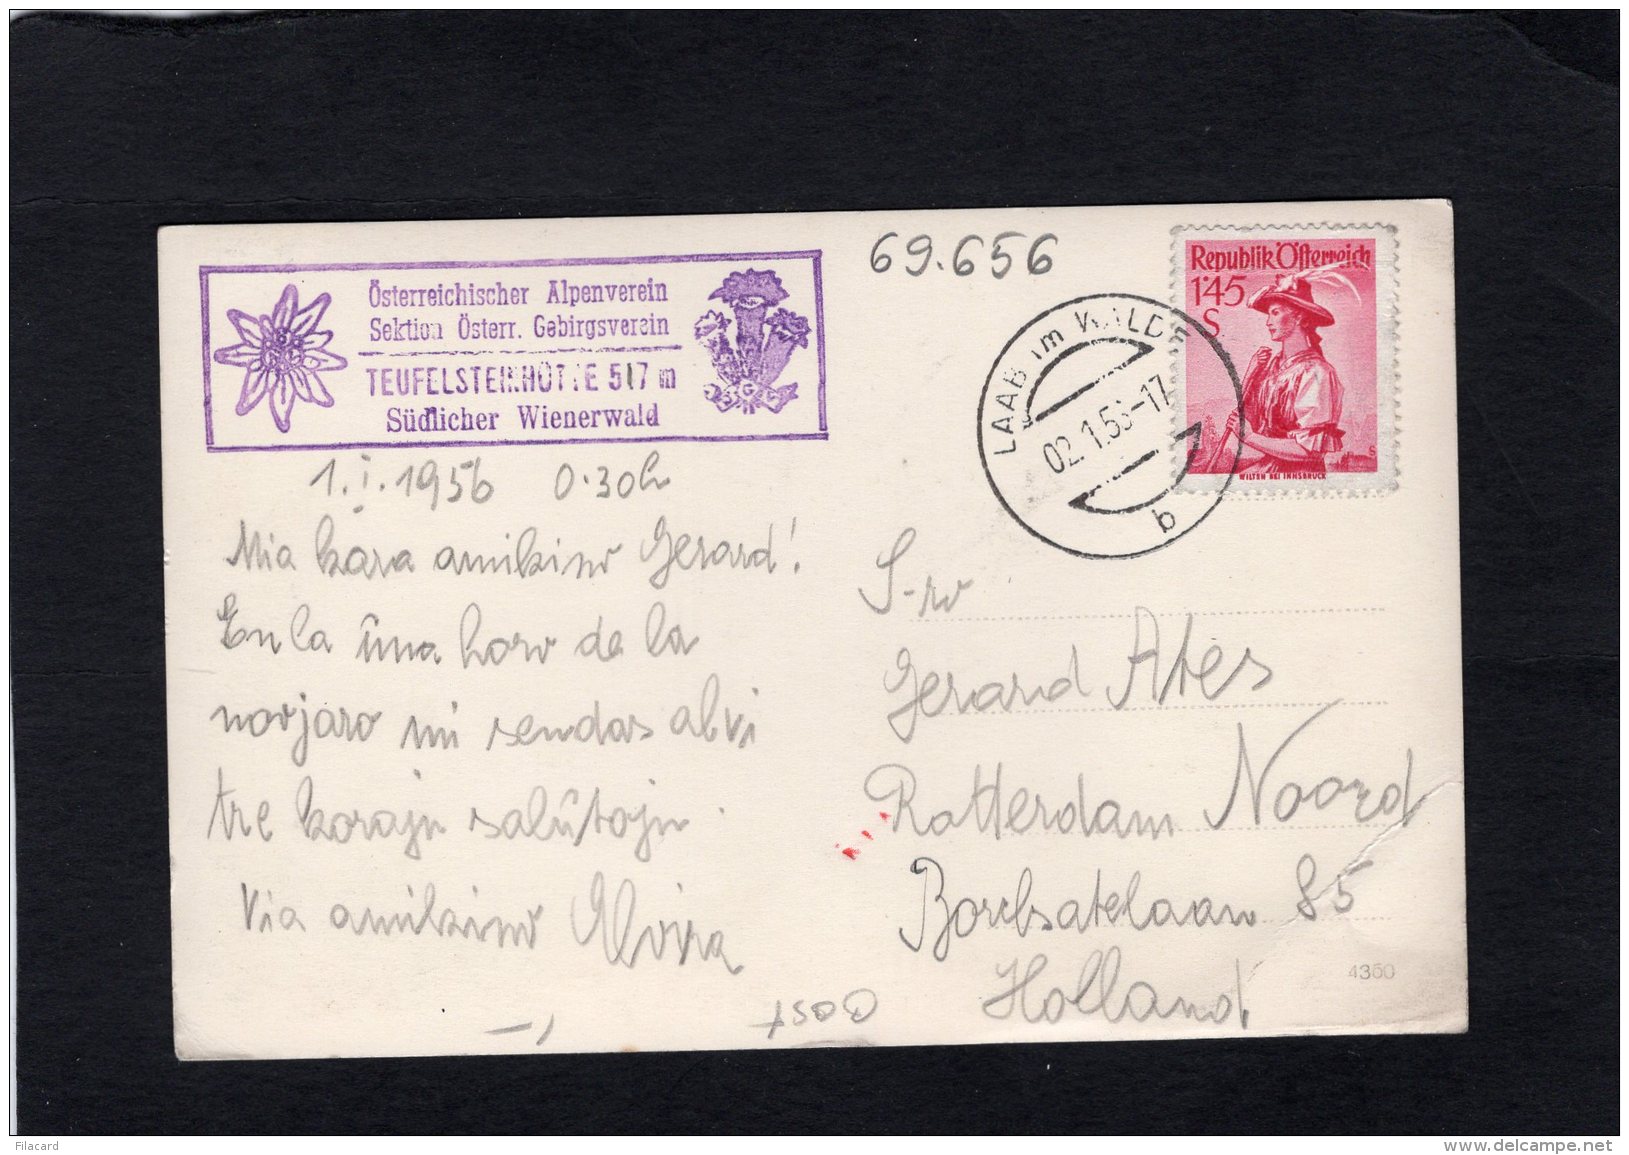 69.656
Republik Österreich
1.45
S
WILTEN BEI INNSBRUCK
Österreichischer Alpenverein
Sektion Österr. Gebirgsverein
TEUFELSTEINHÜTTE 517 m
Südlicher Wienerwald
LAAB im WALDE
02.1.56-17
b
1.I.1956 0.30h
Mia kara amikino Gerard!
En la ûna horo de la
novjaro mi sendas al vi
tre korajn salûtojn.
Via amikino
S-ro
Gerard Ates
Rotterdam Noord
85
Holland
4350
Oost
Filacard
www.delcampe.net